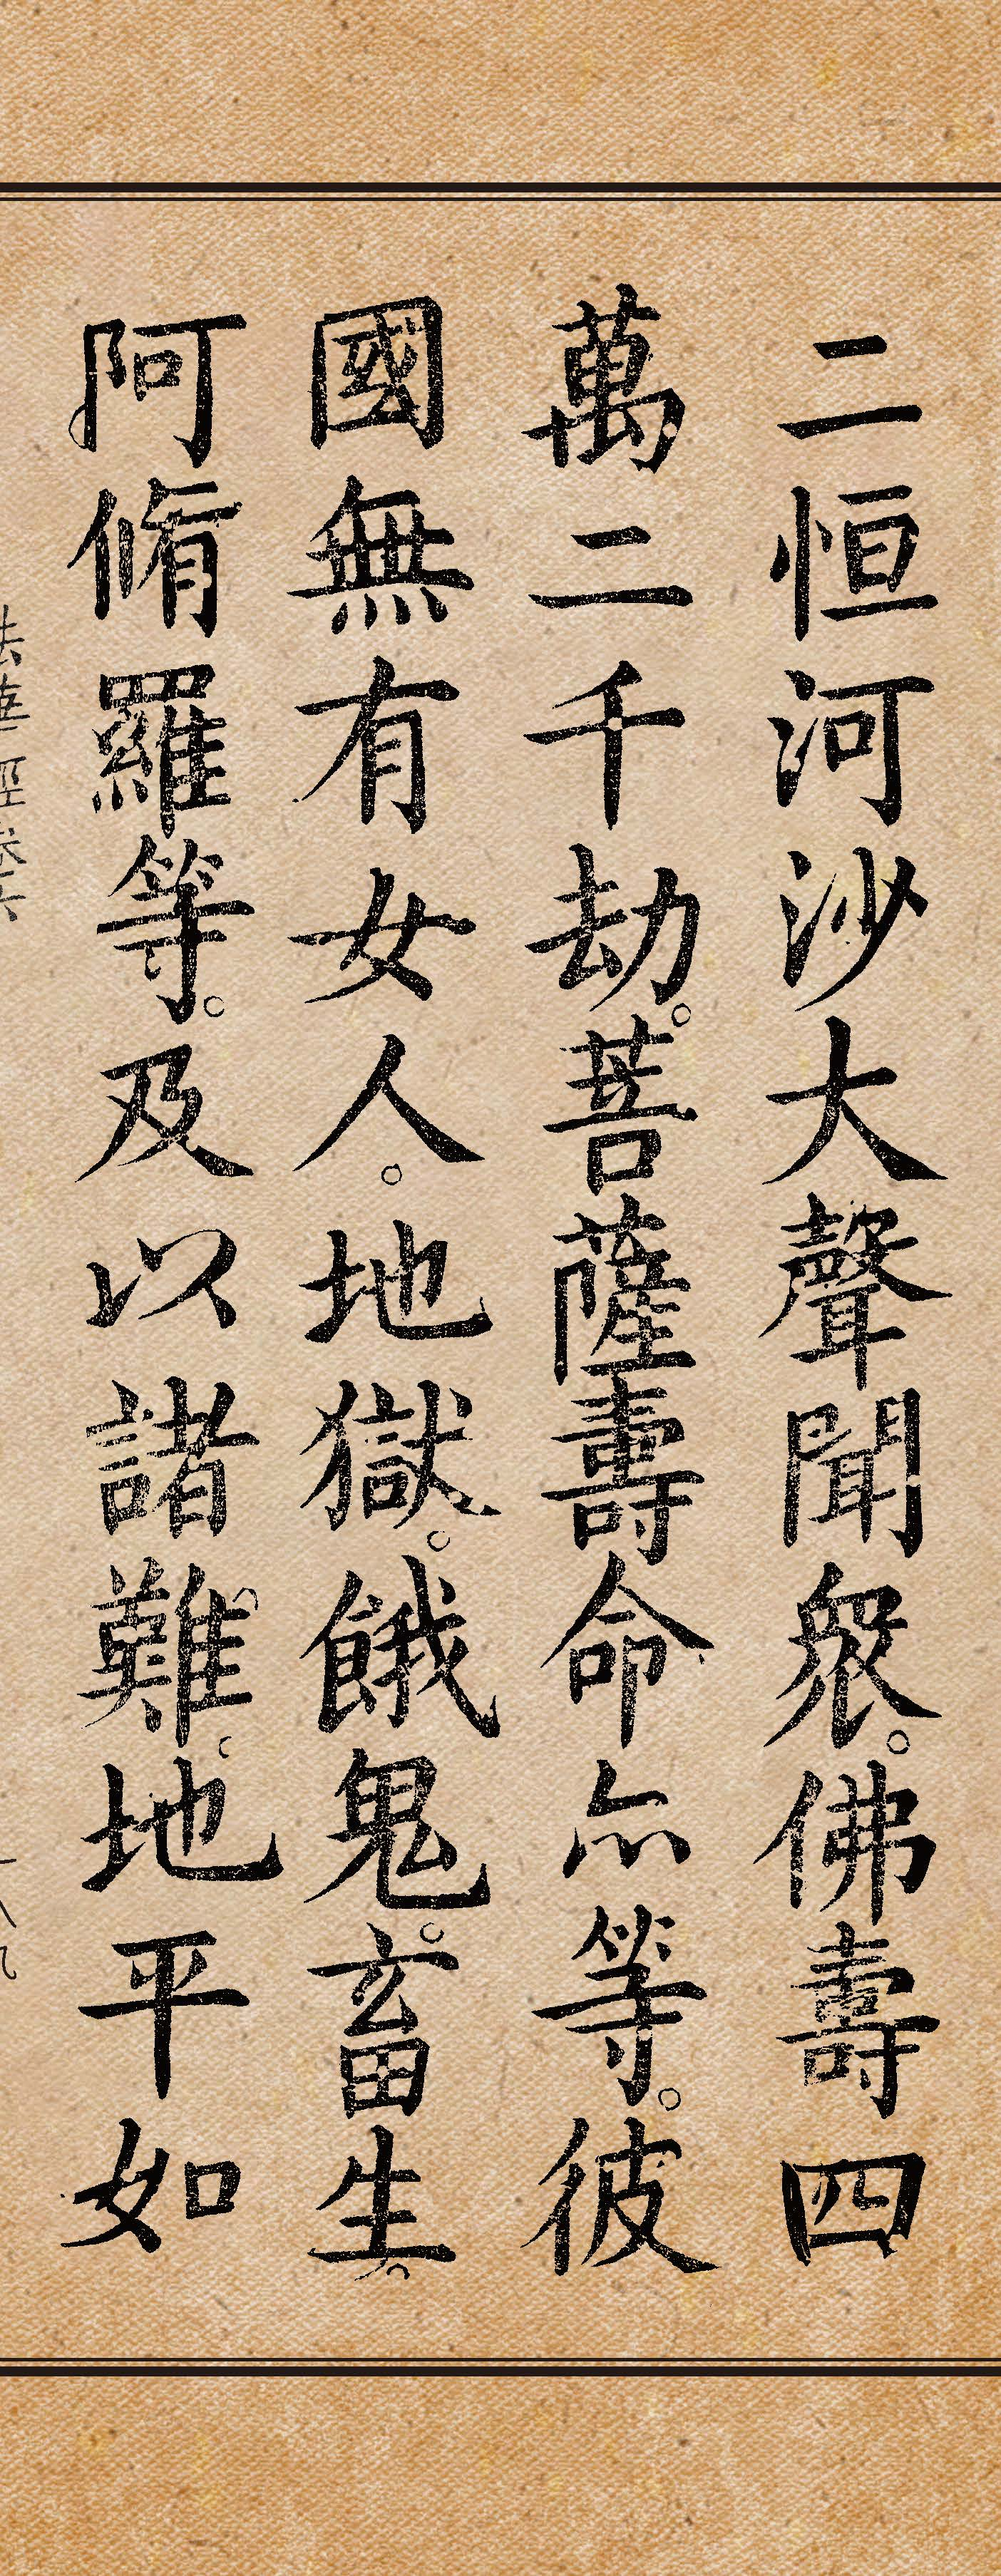 二恒河沙大聲聞衆。佛壽四
萬二千劫。菩薩壽命亦等。彼
國無有女人。地獄。餓鬼。畜生。
阿脩羅等。及以諸難。地平如
法華經卷六